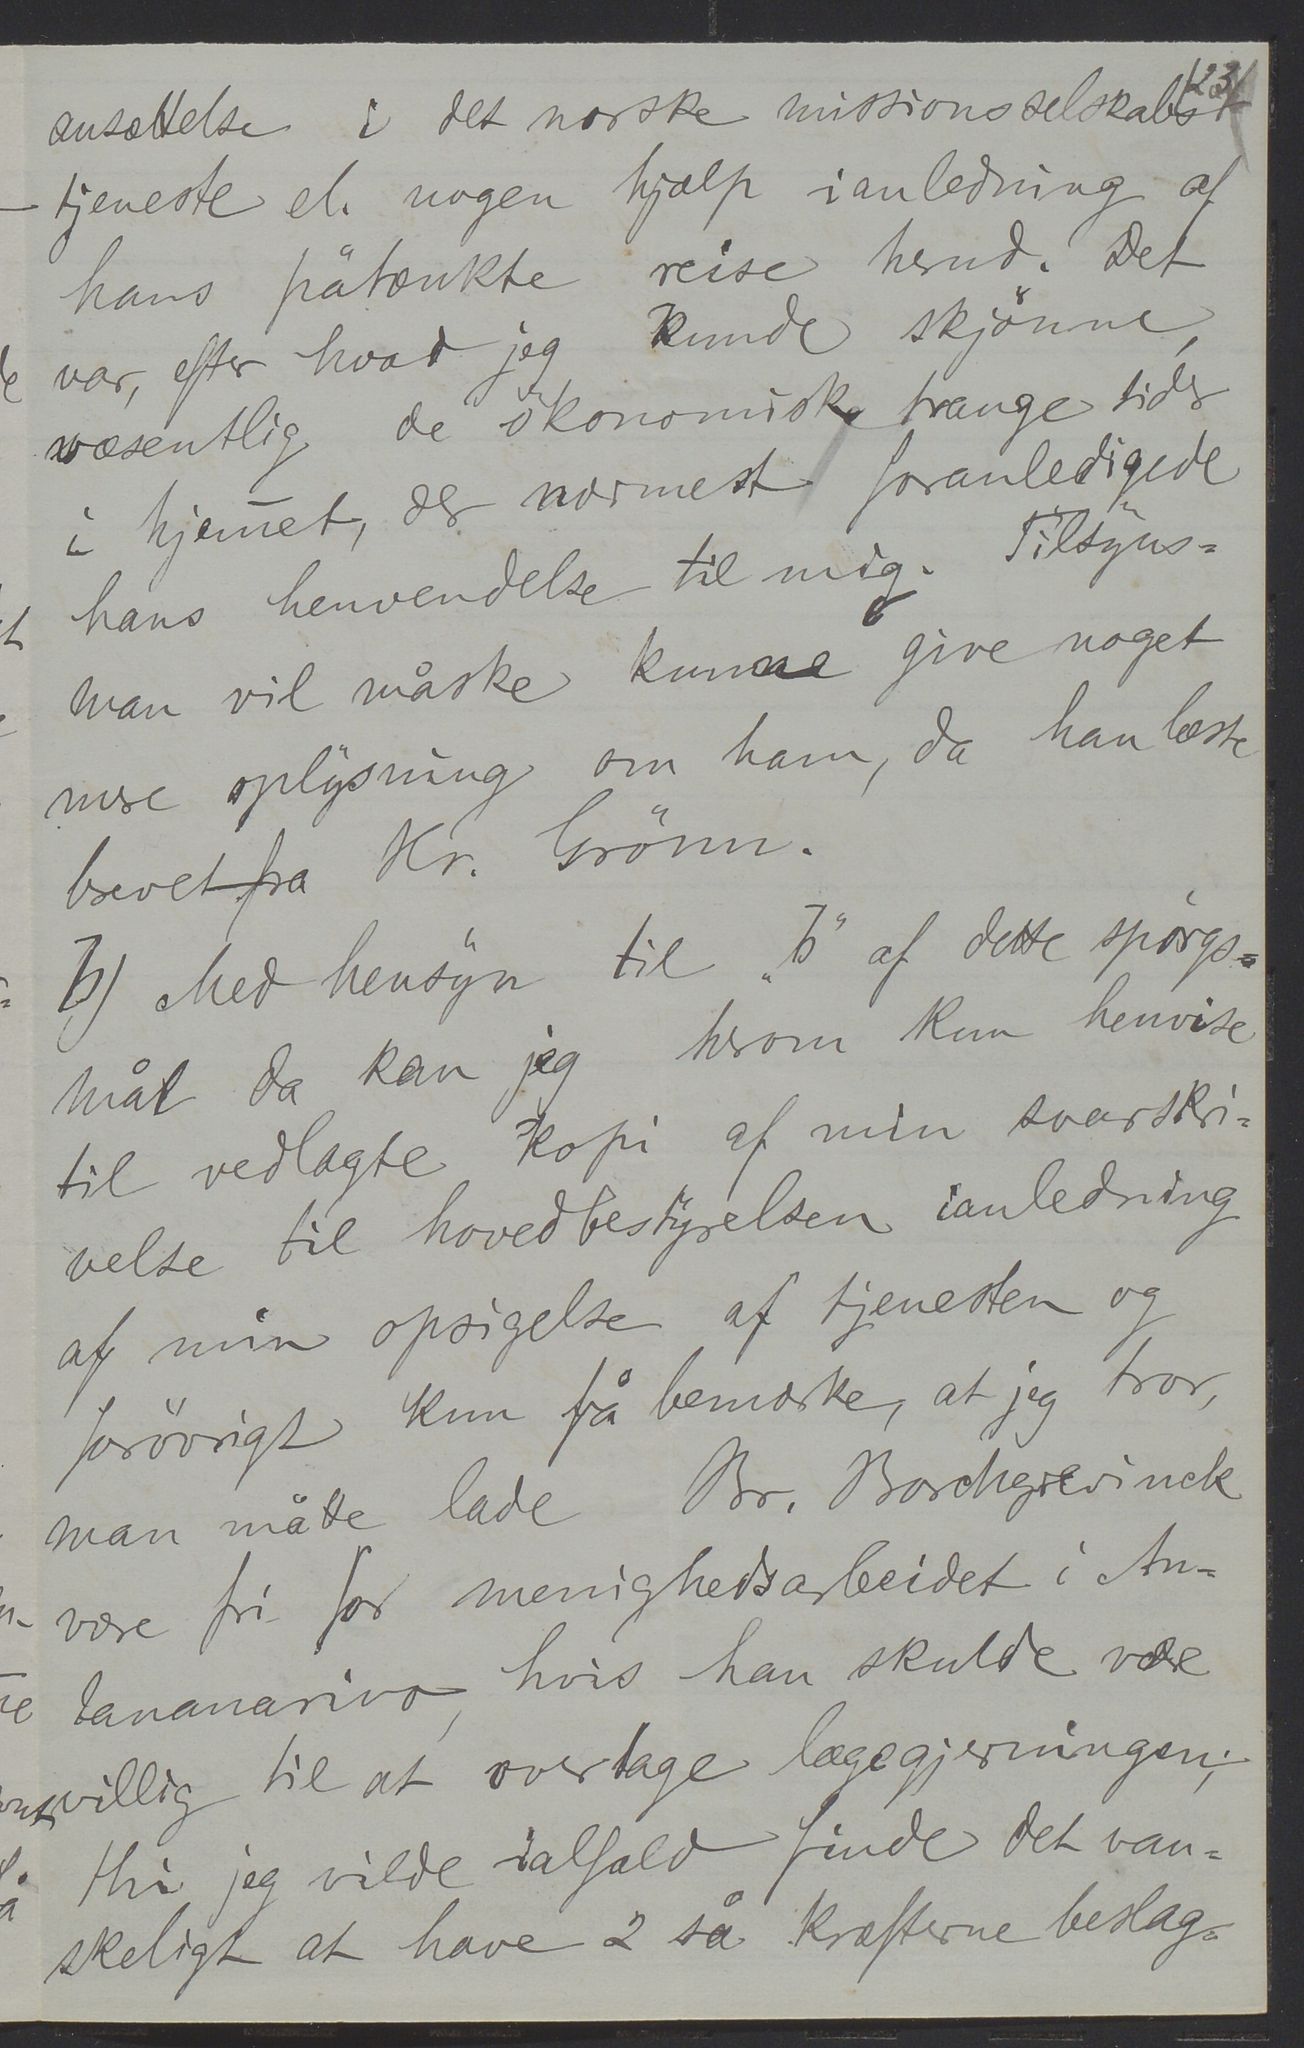 123
ansættelse i det norske missionsselskabs
tjeneste el. nogen hjælp ianledning af
hans påtænkte reise herud. Det
var, efter hvad jeg kunde skjönne,
væsentlig de ökonomiske trange tider
i hjem̅et, der nærmest foranledigede
hans henvendelse til mig. Tilsyns=
man vil måske kunne give noget
mere oplysning om ham, da han læste
brevet fra Kr. Grönn.
b) Med hensyn til „b" af dette spörgs=
mål da kan jeg herom kun henvise
til vedlagte kopi af min svarskri=
velse til hovedbestyrelsen ianledning
af min opsigelse af tjenesten og
forövrigt kun få bemærke, at jeg tror,
man måtte lade Br. Borchgrevinck
være fri for menighedsarbeidet i An=
tananarivo, hvis han skulde være
villig til at overtage lægegjerningen;
thi jeg vilde ialfald finde det van=
skeligt at have 2 så kræfterne beslag=